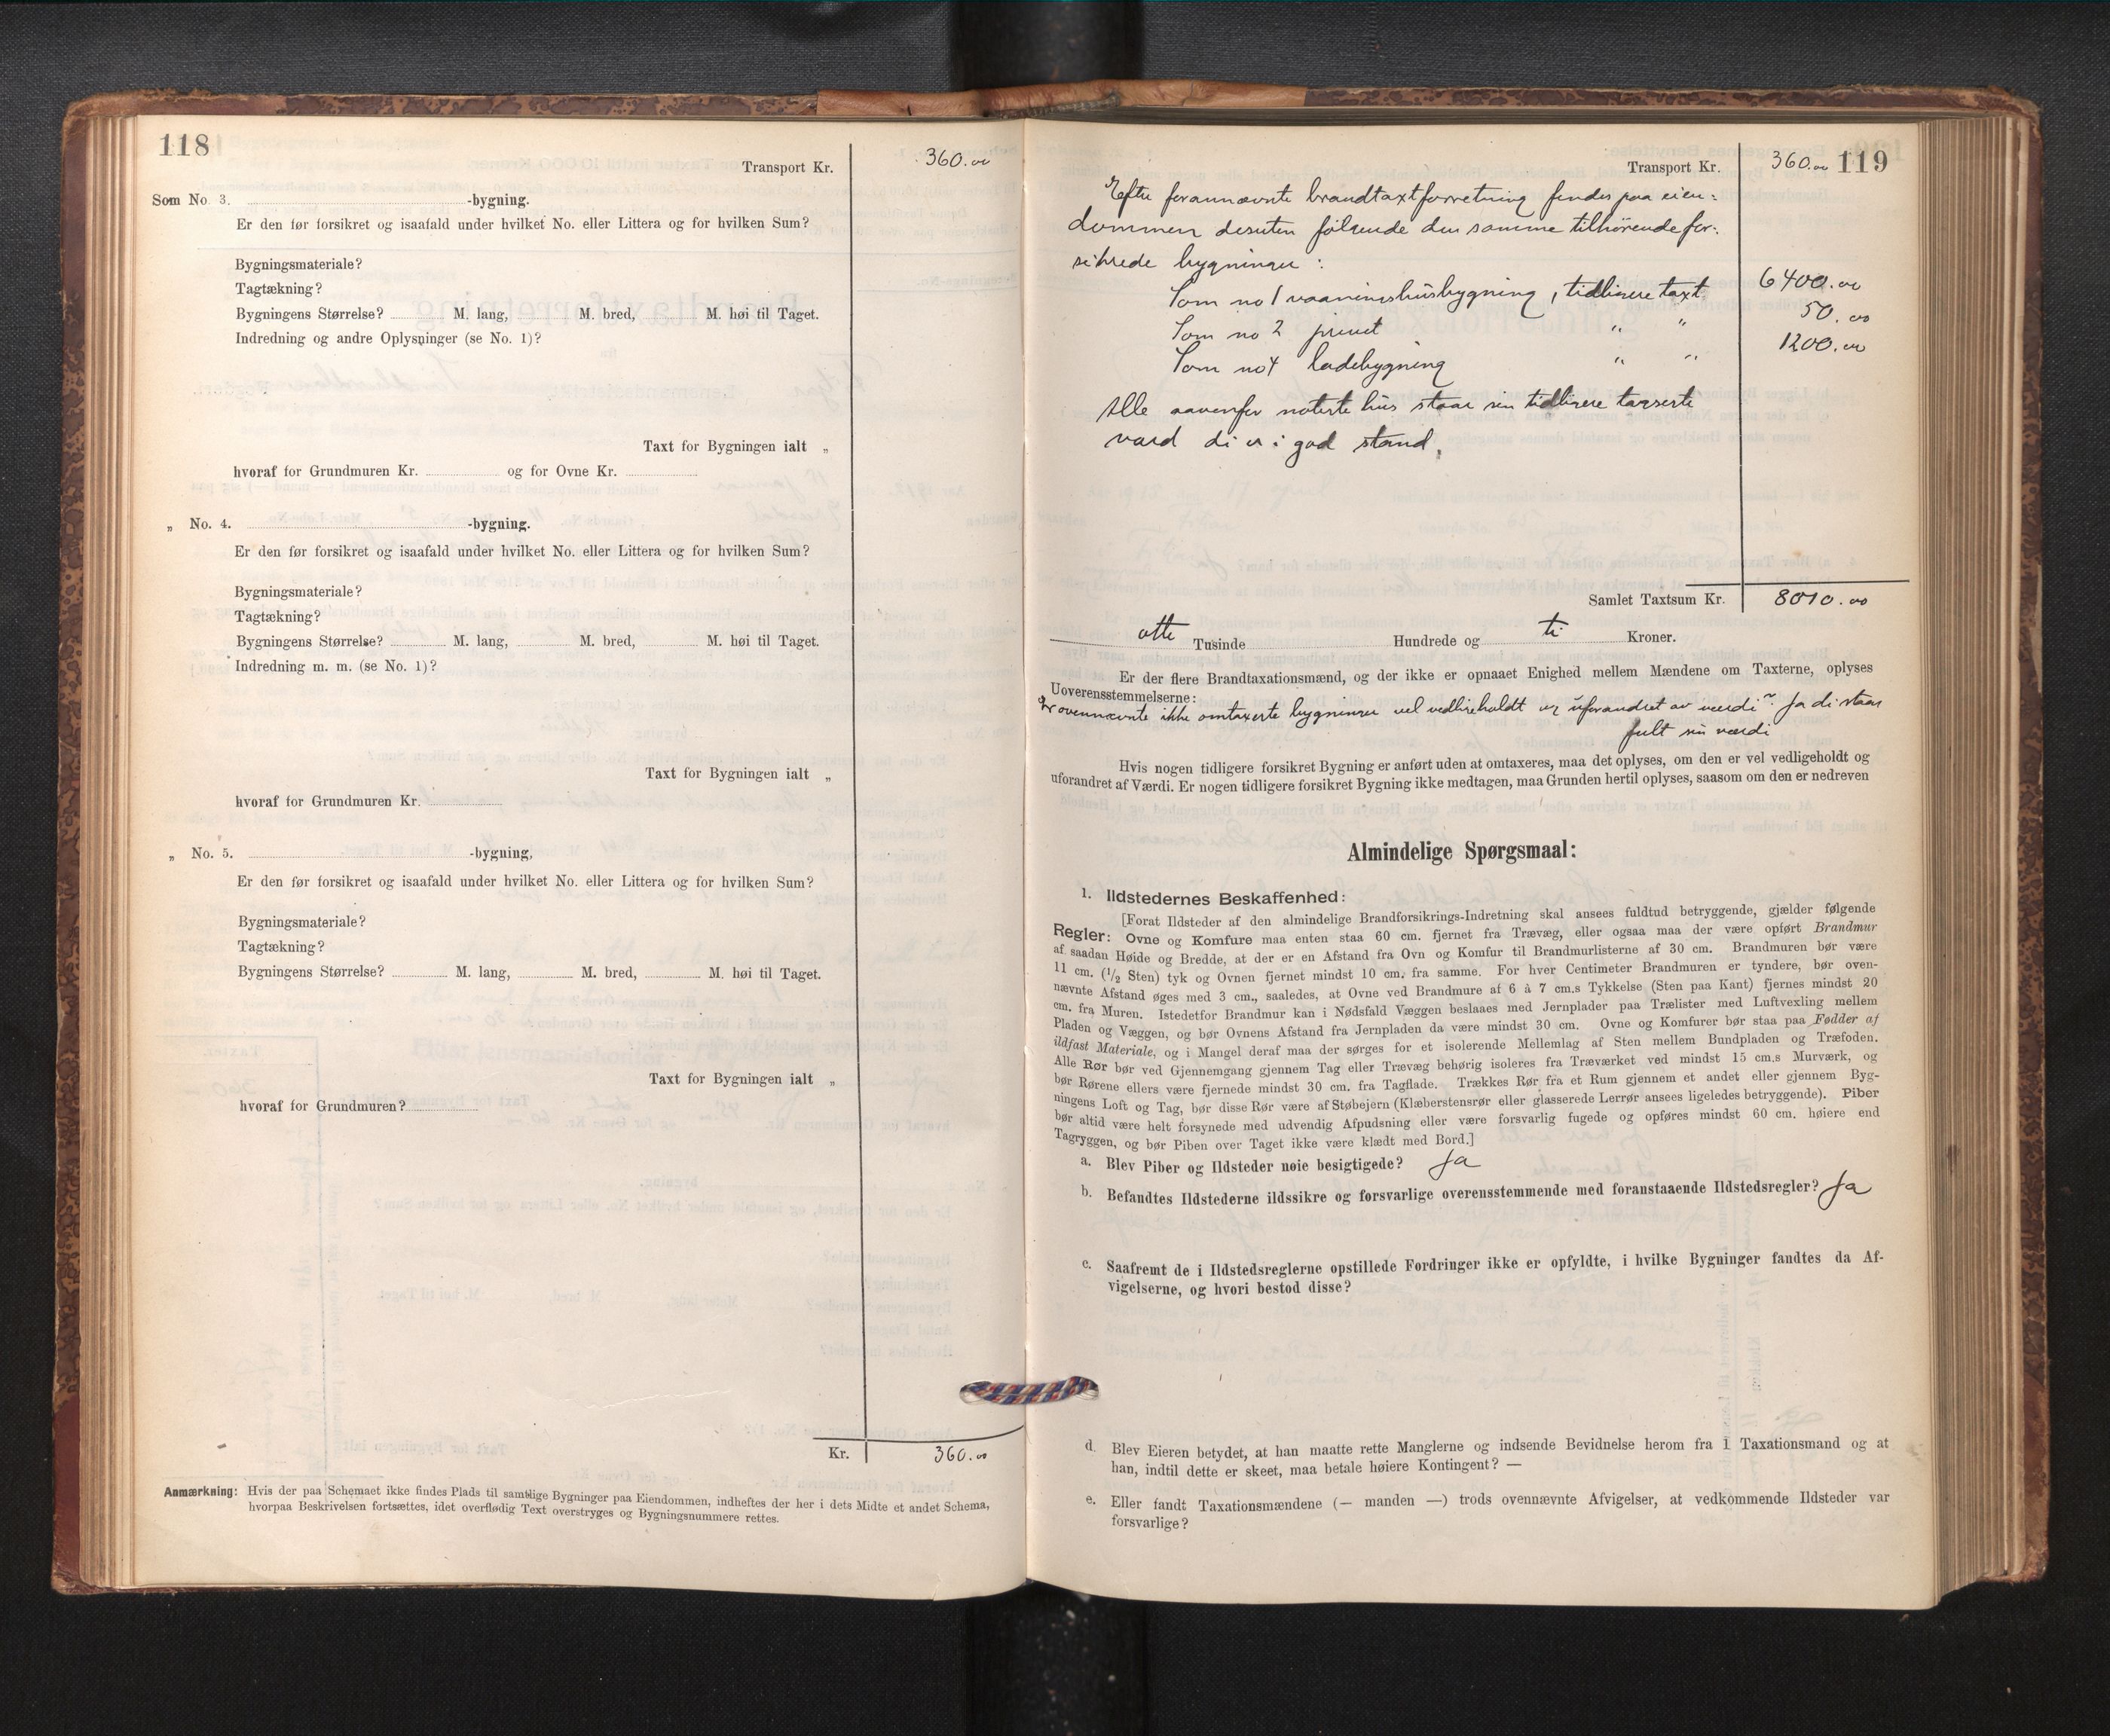 118
Transport Kr. 360.00
Som No. 3. -bygning.
Er den før forsikret og isaafald under hvilket No. eller Littera og for hvilken Sum?
Bygningsmateriale?
Tagtækning?
Bygningens Størrelse? M. lang, M. bred, M. høi til Taget.
Indredning og andre Oplysninger (se No. 1)?
Taxt for Bygningen ialt „
hvoraf for Grundmuren Kr. og for Ovne Kr.
„ No. 4. -bygning.
Er den før forsikret og isaafald under hvilket No. eller Littera og for hvilken Sum?
Bygningsmateriale?
Tagtækning?
Bygningens Størrelse? M. lang, M. bred, M. høi til Taget.
Indredning m. m. (se No. 1)?
Taxt for Bygningen ialt „
hvoraf for Grundmuren Kr.
„ No. 5. -bygning,
Er den før forsikret og isaafald under hvilket No. eller Littera og for hvilken Sum?
Bygningsmateriale?
Tagtækning?
Bygningens Størrelse? M. lang, M. bred, M. høi til Taget.
Taxt for Bygningen ialt „
hvoraf for Grundmuren?
Kr. 360.00
Anmærkning: Hvis der paa Schemaet ikke findes Plads til samtlige Bygninger paa Eiendommen, indheftes der her i dets Midte et andet Schema,
hvorpaa Beskrivelsen fortsættes, idet overflødig Text overstryges og Bygningsnummere rettes.
Transport Kr. 360.00 119
Efter forannævnte brandtaxtforretning findes paa eien:
dommen desuten følgende den samme tilhørende for:
sikrede bygninger:
Som no 1 vaaningshusbygning, tidligere taxt 6400.00
Som no 2 privet " " 50.00
Som no 4 ladebygning " " 1200.00
Alle aavenfor noterte hus staar sin tidligere taxserte
værd di er i god stand.
Samlet Taxtsum Kr. 8010.00
otte Tusinde Hundrede og ti Kroner.
Er der flere Brandtaxationsmænd, og der ikke er opnaaet Enighed mellem Mændene om Taxterne, oplyses
Uoverensstemmelserne:
Er ovennævnte ikke omtaxerte bygninger vel vedlikeholdt og uforandret av værdi? Ja di staar
fult sin værdi
Hvis nogen tidligere forsikret Bygning er anført uden at omtaxeres, maa det oplyses, om den er vel vedligeholdt og
uforandret af Værdi. Er nogen tidligere forsikret Bygning ikke medtagen, maa Grunden hertil oplyses, saasom om den er nedreven
Almindelige Spørgsmaal:
1. Ildstedernes Beskaffenhed:
[Forat Ildsteder af den almindelige Brandforsikrings-Indretning skal ansees fuldtud betryggende, gjælder følgende
Regler: Ovne og Komfure maa enten staa 60 cm. fjernet fra Trævæg, eller ogsaa maa der være opført Brandmur
af saadan Høide og Bredde, at der er en Afstand fra Ovn og Komfur til Brandmurlisterne af 30 cm. Brandmuren bør være
11 cm. (1/2 Sten) tyk og Ovnen fjernet mindst 10 cm. fra samme. For hver Centimeter Brandmuren er tyndere, bør oven-
nævnte Afstand øges med 3 cm., saaledes, at Ovne ved Brandmure af 6 à 7 cm.s Tykkelse (Sten paa Kant) fjernes mindst 20
cm. fra Muren. Istedetfor Brandmur kan i Nødsfald Væggen beslaaes med Jernplader paa Trælister med Luftvexling mellem
Pladen og Væggen, og bør Ovnens Afstand fra Jernpladen da være mindst 30 cm. Ovne og Komfurer bør staa paa Fødder af
ildfast Materiale, og i Mangel deraf maa der sørges for et isolerende Mellemlag af Sten mellem Bundpladen og Træfoden.
Alle Rør bør ved Gjennemgang gjennem Tag eller Trævæg behørig isoleres fra Træværket ved mindst 15 cm.s Murværk, og
bør Rørene ellers være fjernede mindst 30 cm. fra Tagflade. Trækkes Rør fra et Rum gjennem et andet eller gjennem Byg-
ningens Loft og Tag, bør disse Rør være af Støbejern (Klæberstensrør eller glasserede Lerrør ansees ligeledes betryggende). Piber
bør altid være helt forsynede med udvendig Afpudsning eller være forsvarlig fugede og opføres mindst 60 cm. høiere end
Tagryggen, og bør Piben over Taget ikke være klædt med Bord.]
a. Blev Piber og Ildsteder nøie besigtigede? Ja
b. Befandtes Ildstederne ildssikre og forsvarlige overensstemmende med foranstaaende Ildstedsregler? Ja
c. Saafremt de i Ildstedsreglerne opstillede Fordringer ikke er opfyldte, i hvilke Bygninger fandtes da Af-
vigelserne, og hvori bestod disse?
d. Blev Eieren betydet, at han maatte rette Manglerne og indsende Bevidnelse herom fra 1 Taxationsmand og at
han, indtil dette er skeet, maa betale høiere Kontingent? —
e. Eller fandt Taxationsmændene (— manden —) trods ovennævnte Afvigelser, at vedkommende Ildsteder var
forsvarlige?